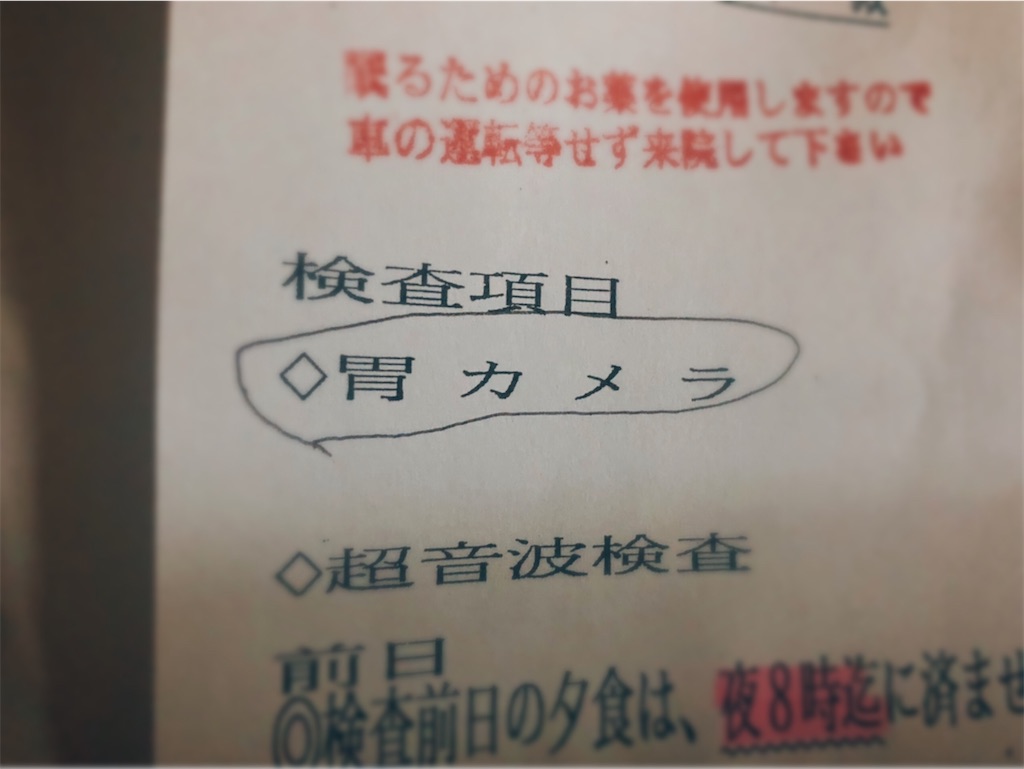 眠るためのお薬を使用しますので
車の運転等せず来院して下さい
検査項目
◇胃カメラ
◇超音波検査
前日
◎検査前日の夕食は、夜8時迄に済ませ